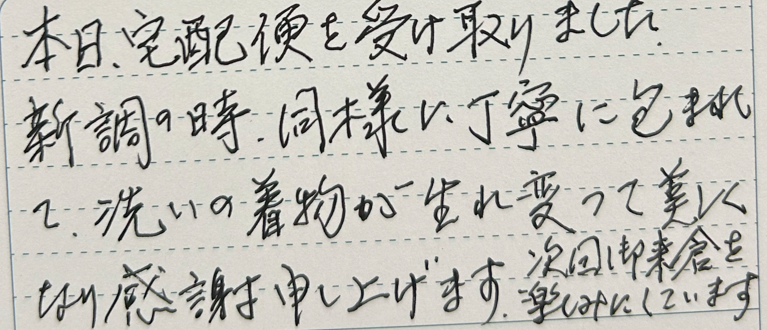 本日、宅配便を受け取りました。
新調の時、同様に、丁寧に包まれ
て、洗いの着物が生れ変って美しく
なり感謝申し上げます。次回御来倉を
楽しみにしています